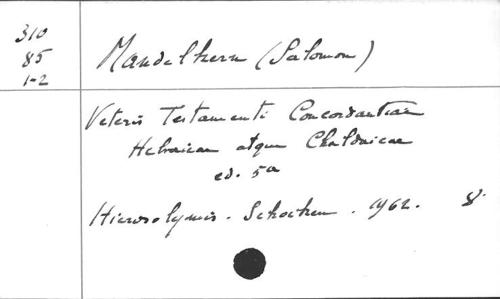 310
85
1-2
Mandelkern (Salomon)
Veteris Testamenti Concordantiae
Hebraicae atque Chaldaicae
ed. 5a
Hierosolymis. Schocken. 1962. 8°